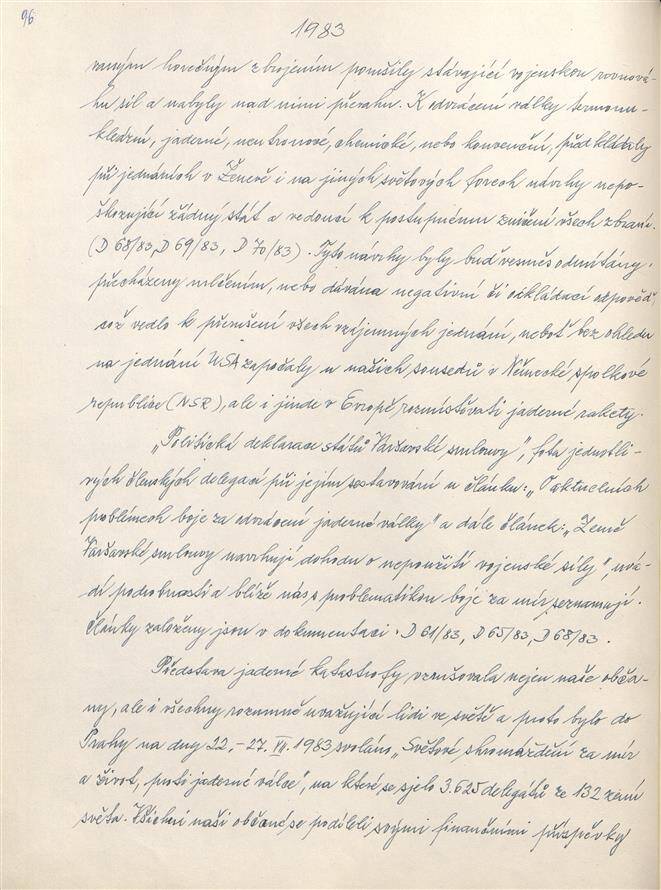 96
1983
vaným horečným zbrojením porušily stávající vojenskou rovnová-
hu sil a nabyly nad nimi převahu. K odvrácení války termonu-
kleární, jaderné, neutronové, chemické, nebo konvenční, předkládaly
při jednáních v Ženevě i na jiných světových forech návrhy nepo-
škozující žádný stát a vedoucí k postupnému zničení všech zbraní.
(D 68/83, D 69/83, D 70/83). Tyto návrhy byly buď vesměs odmítány,
přecházeny mlčením, nebo dávána negativní či odkládací odpověď,
což vedlo k přerušení všech vzájemných jednání, neboť bez ohledu
na jednání USA započaly u našich sousedů v Německé spolkové
republice (NSR), ale i jinde v Evropě rozmísťovati jaderné rakety.
„Politická deklarace států Varšavské smlouvy", fota jednotli-
vých členských delegací při jejím sestavování u článku: „O aktuelních
problémech boje za odvrácení jaderné války" a dále článek: „Země
Varšavské smlouvy navrhují dohodu o nepoužití vojenské síly", uvá-
dí podrobnosti a blíže nás s problematikou boje za mír seznamují.
Články založeny jsou v dokumentaci. D 61/83, D 65/83, D 68/83.
Představa jaderné katastrofy vzrušovala nejen naše obča-
ny, ale i všechny rozumně uvažující lidi ve světě a proto bylo do
Prahy na dny 22.-27. VI. 1983 svoláno „Světové shromáždění za mír
a život, proti jaderné válce", na které se sjelo 3.625 delegátů ze 132 zemí
světa. Všichni naši občané se podíleli svými finančními příspěvky